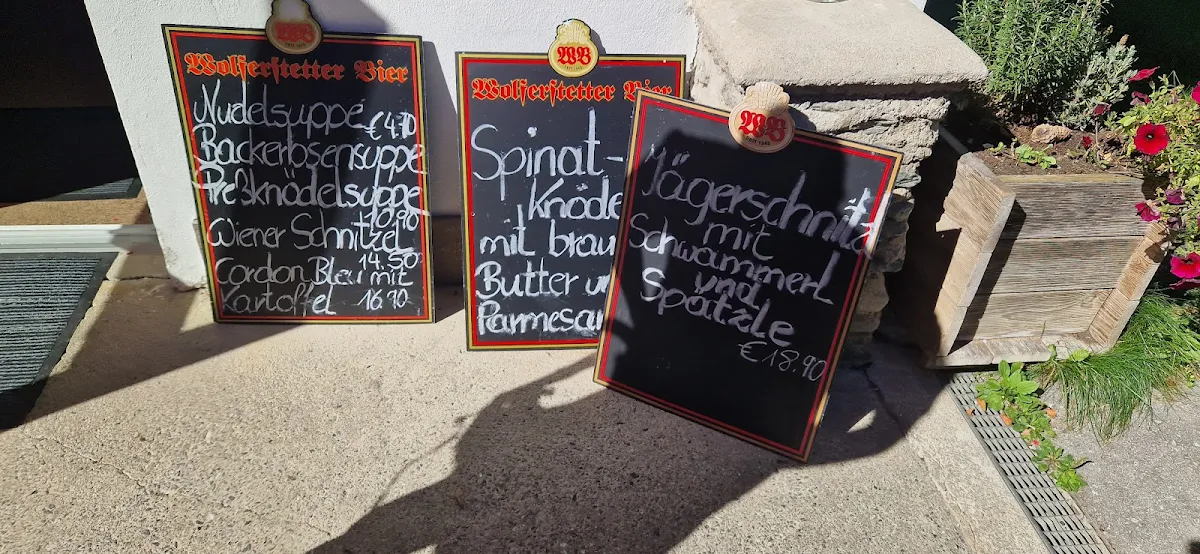 WB
Wolferstetter Bier
Nudelsuppe
€ 4.70
Backerbsensuppe
Preßknödelsuppe
10.90
Wiener Schnitzel
14.50
Cordon Bleu mit
Kartoffel 16.90
WB
Wolferstetter Bier
Spinat-
Knöde
mit brau
Butter u
Parmesan
WB
SEIT 1543
Jägerschnitz
mit
Schwammerl
und
Spätzle
€ 18.90